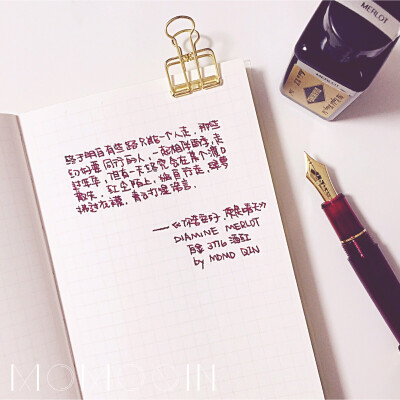 终于明白有些路只能一个人走，那些
约好要同行的人，一起相伴雨季，走
过年华，但有一天终究会在某个渡口
离失，红尘陌上，独自行走，绿萝
拂过衣襟，青云打湿诺言．
——《你若安好，便是晴天》
DIAMINE MERLOT
百乐 3776 酒红
by MOMO QIN
MERLOT
MOMOQIN